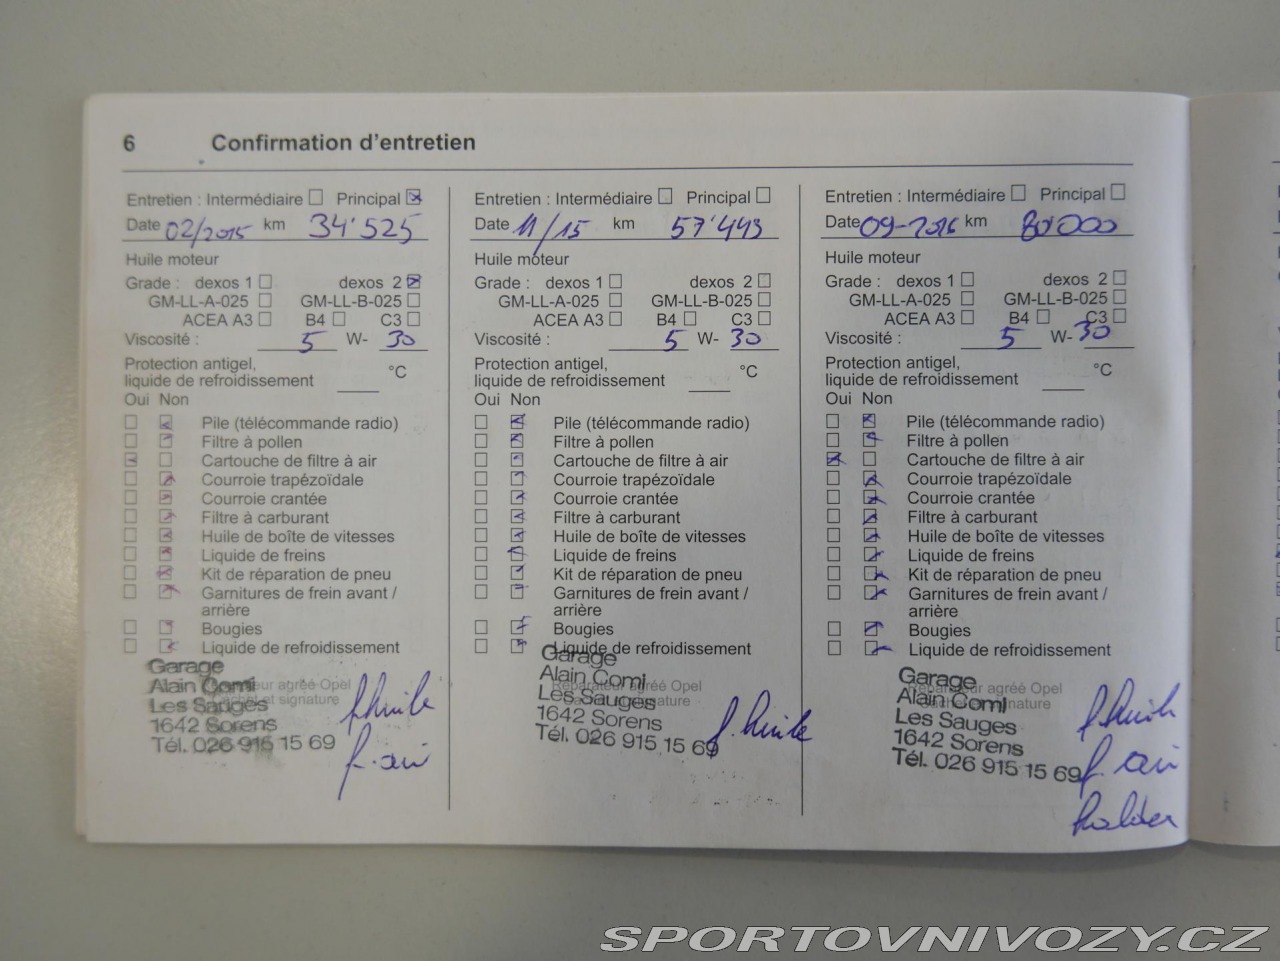 6 Confirmation d'entretien
Entretien : Intermédiaire Principal
Date 02/2015 km 34'525
Huile moteur
Grade : dexos 1 dexos 2
GM-LL-A-025 GM-LL-B-025
ACEA A3 B4 C3
Viscosité : 5 W- 30
Protection antigel,
liquide de refroidissement °C
Oui Non
Pile (télécommande radio)
Filtre à pollen
Cartouche de filtre à air
Courroie trapézoïdale
Courroie crantée
Filtre à carburant
Huile de boîte de vitesses
Liquide de freins
Kit de réparation de pneu
Garnitures de frein avant /
arrière
Bougies
Liquide de refroidissement
Garage
Alain Comi
Les Sauges
1642 Sorens
Tél. 026 915 15 69
agréé Opel
et signature
f. huile
f. air
Entretien : Intermédiaire Principal
Date 11/15 km 57'443
Huile moteur
Grade : dexos 1 dexos 2
GM-LL-A-025 GM-LL-B-025
ACEA A3 B4 C3
Viscosité : 5 W- 30
Protection antigel,
liquide de refroidissement °C
Oui Non
Pile (télécommande radio)
Filtre à pollen
Cartouche de filtre à air
Courroie trapézoïdale
Courroie crantée
Filtre à carburant
Huile de boîte de vitesses
Liquide de freins
Kit de réparation de pneu
Garnitures de frein avant /
arrière
Bougies
Liquide de refroidissement
Garage
Alain Comi
Les Sauges
1642 Sorens
Tél. 026 915 15 69
Réparateur agréé Opel
signature
f. huile
Entretien : Intermédiaire Principal
Date 09-2016 km 80'000
Huile moteur
Grade : dexos 1 dexos 2
GM-LL-A-025 GM-LL-B-025
ACEA A3 B4 C3
Viscosité : 5 W- 30
Protection antigel,
liquide de refroidissement °C
Oui Non
Pile (télécommande radio)
Filtre à pollen
Cartouche de filtre à air
Courroie trapézoïdale
Courroie crantée
Filtre à carburant
Huile de boîte de vitesses
Liquide de freins
Kit de réparation de pneu
Garnitures de frein avant /
arrière
Bougies
Liquide de refroidissement
Garage
Alain Comi
Les Sauges
1642 Sorens
Tél. 026 915 15 69
Réparateur agréé Opel
Cachet et signature
f. huile
f. air
SPORTOVNIVOZY.CZ